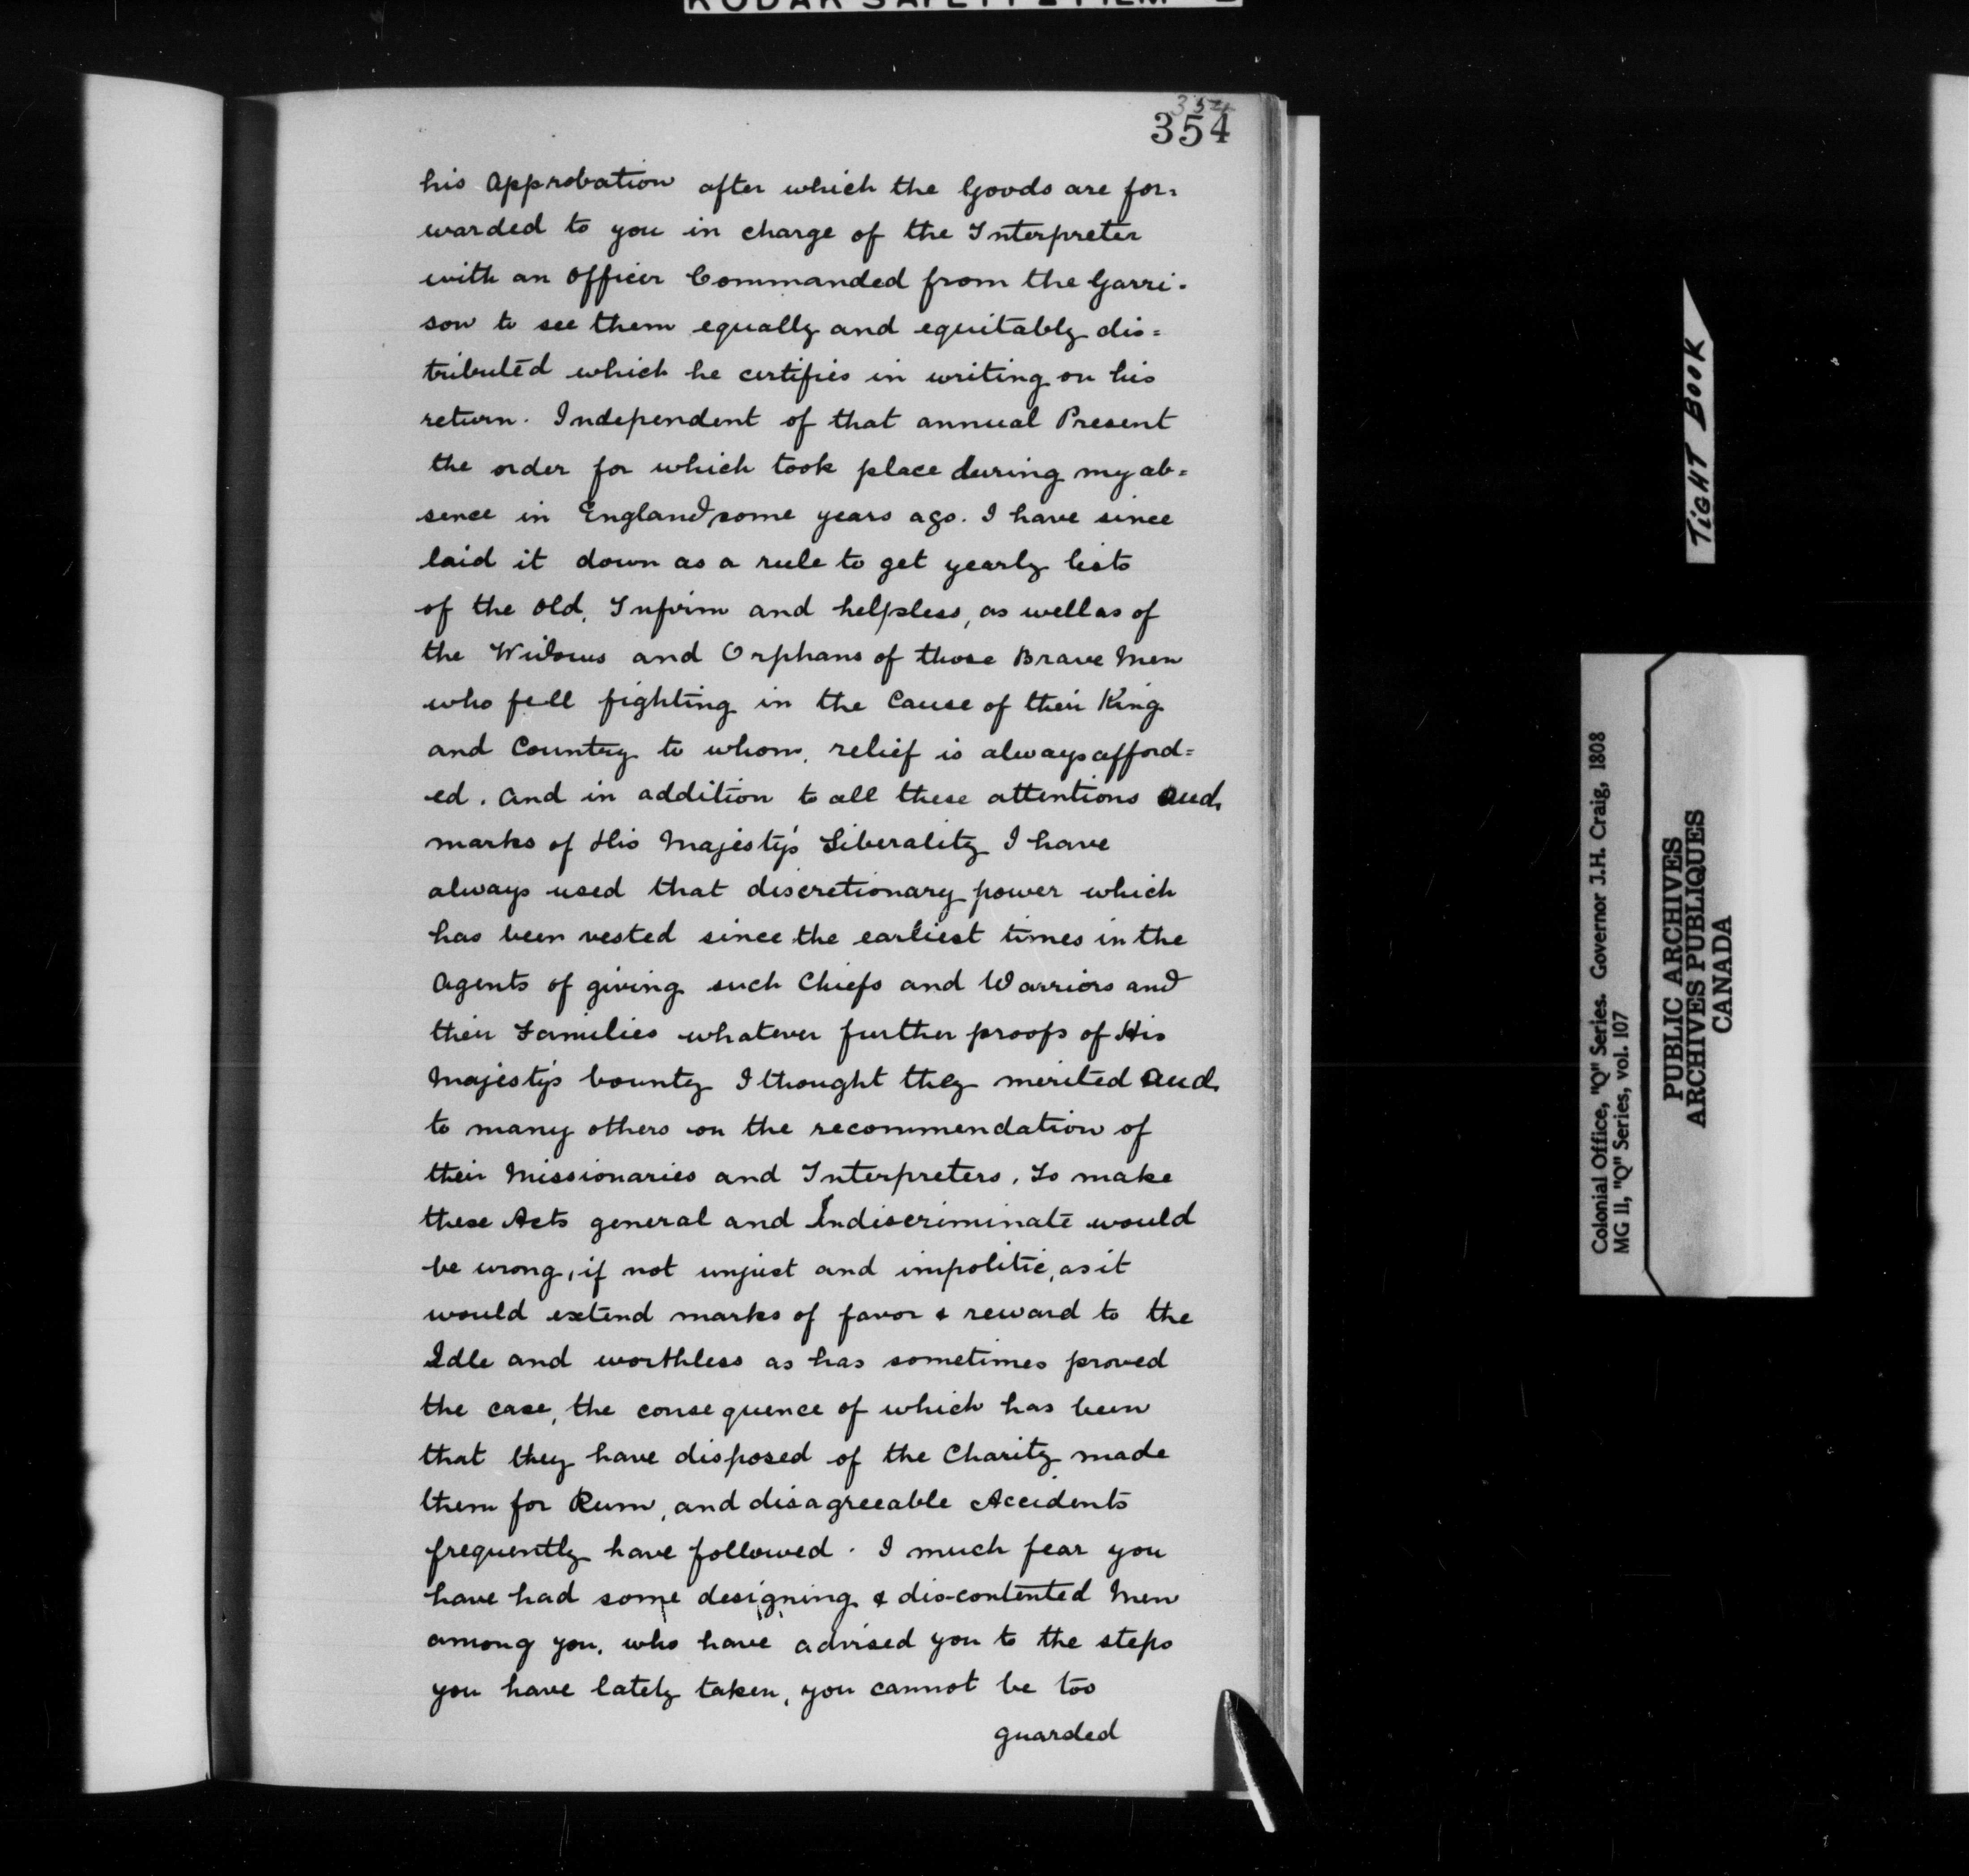 354
354
his Approbation after which the Goods are for=
warded to you in charge of the Interpreter
with an Officer Commanded from the Garri-
son to see them equally and equitably dis=
tributed which he certifies in writing on his
return. Independent of that annual Present
the order for which took place during my ab=
sence in England some years ago. I have since
laid it down as a rule to get yearly lists
of the Old, Infirm and helpless, as well as of
the Widows and Orphans of those Brave Men
who fell fighting in the Cause of their King
and Country to whom, relief is always afford=
ed. And in addition to all these attentions and
marks of His Majesty's Liberality I have
always used that discretionary power which
has been vested since the earliest times in the
Agents of giving such Chiefs and Warriors and
their Families whatever further proofs of His
Majesty's bounty I thought they merited and
to many others on the recommendation of
their Missionaries and Interpreters. To make
these Acts general and Indiscriminate would
be wrong, if not unjust and impolitic, as it
would extend marks of favor & reward to the
Idle and worthless as has sometimes proved
the case, the consequence of which has been
that they have disposed of the Charity made
them for Rum, and disagreeable Accidents
frequently have followed. I much fear you
have had some designing & dis-contented Men
among you, who have advised you to the steps
you have lately taken, you cannot be too
guarded
TIGHT BOOK
Colonial Office, "Q" Series. Governor J.H. Craig, 1808
MG 11, "Q" Series, vol. 107
PUBLIC ARCHIVES
ARCHIVES PUBLIQUES
CANADA